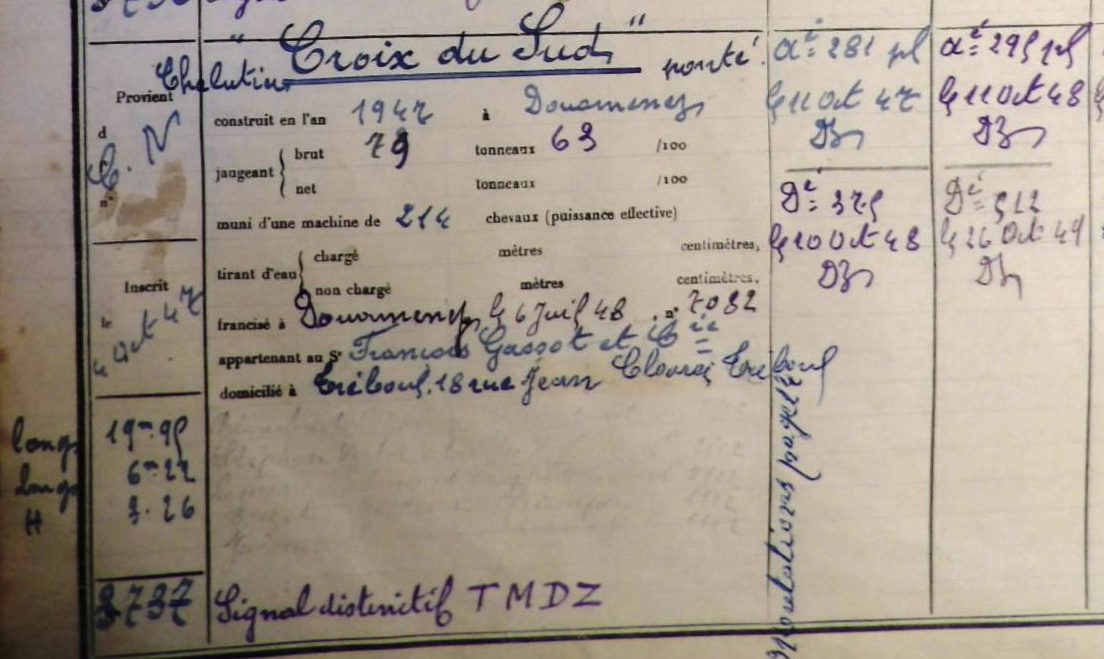 " Croix du Sud "
Chalutier
ponté.
Provient
d
C. N
n°
construit en l'an 1947 à Douarnenez
jaugeant { brut 79 tonneaux 63 /100
net tonneaux /100
muni d'une machine de 214 chevaux (puissance effective)
tirant d'eau { chargé mètres centimètres,
non chargé mètres centimètres.
Inscrit
le
4 Oct 47
francisé à Douarnenez le 6 Juil 48 , n° 7082
appartenant au Sr François Gassot et Cie
domicilié à Tréboul, 18 rue Jean Tréboul
long 19m.95
larg 6m 22
H 3.26
3737
Signal distinctif TMDZ
Aé = 281 pl
le 11 Oct 47
Dz
Dé = 375
le 20 Oct 48
Dz
Aé = 295 pl
le 11 Oct 48
Dz
Dé = 512
le 26 Oct 49
Dz